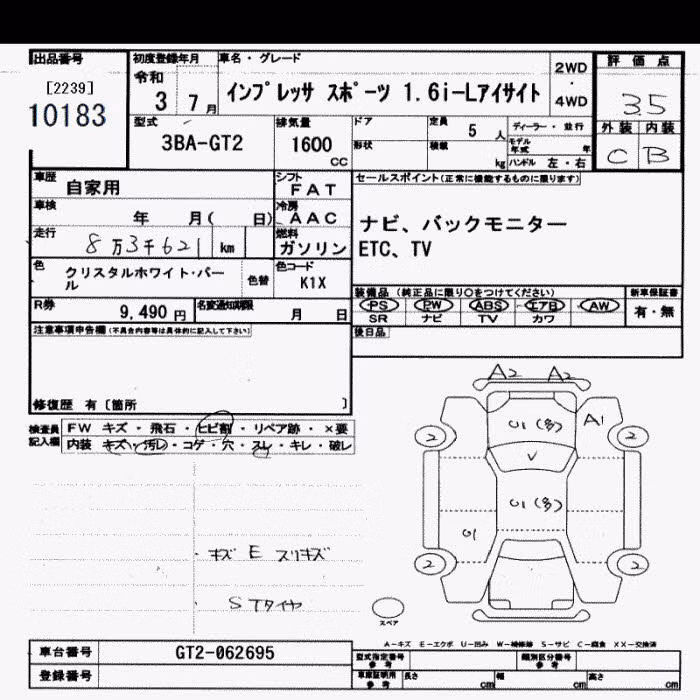 出品番号
[2239]
10183
初度登録年月
令和
3 7月
車名・グレード
インプレッサ スポーツ 1.6i-Lアイサイト
2WD
・
4WD
評価点
3.5
外装 内装
C B
型式
3BA-GT2
排気量
1600
CC
ドア
形状
定員 5 人
積載 kg
ディーラー・並行
モデル年式 年
ハンドル 左・右
車歴
自家用
シフト
FAT
セールスポイント(正常に機能するものに限ります)
車検
年 月( 日)
冷房
AAC
ナビ、バックモニター
ETC、TV
走行
8万3千621 km
燃料
ガソリン
色
クリスタルホワイト・パール
色替
色コード
K1X
装備品 (純正品に限り○をつけてください)
新車保証書
PS PW ABS エアB AW
有・無
SR ナビ TV カワ
R券
9,490円
名変通知期限
月 日
後日品
注意事項申告欄(不具合内容等は具体的に記入して下さい)
修復歴 有〔箇所 〕
検査員記入欄
FW キズ・飛石・ヒビ割・リペア跡・×要
内装 キズ・汚レ・コゲ・穴・スレ・キレ・破レ
・キズ E スリキズ
S Tタイヤ
A2 A2
U1(多) A1
2 2
V
U1(多)
U1
2 2
スペア
A－キズ E－エクボ U－凹み W－補修跡 S－サビ C－腐食 XX－交換済
車台番号
GT2-062695
登録番号
型式指定番号 参考
類別区分番号 参考
車庫証明用 参考
長さ cm
幅 cm
高さ cm